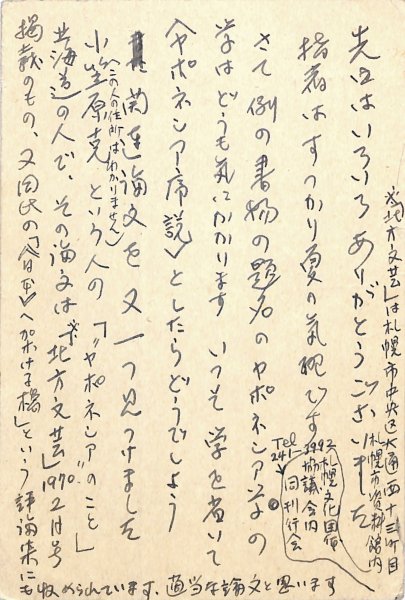 先日はいろいろありがとうございました
指宿はすっかり夏の気配です
さて例の書物の題名のヤポネシア学の
学はどうも気にかかります いっそ学を省いて
〈ヤポネシア序説〉としたらどうでしょう
関連論文を又一つ見つけました
(この人の住所はわかりません)
小笠原克という人の「“ヤポネシア”のこと」
北海道の人で、その論文は※「北方文芸」1970 2月号
掲載のもの、又同氏の「〈日本〉へ架ける橋」という評論集にも
収められています、適当な論文と思います
※「北方文芸」は札幌市中央区大通西十三丁目
札幌市資料館内
札幌文化団体
協議会内
同刊行会
Tel 241-3992